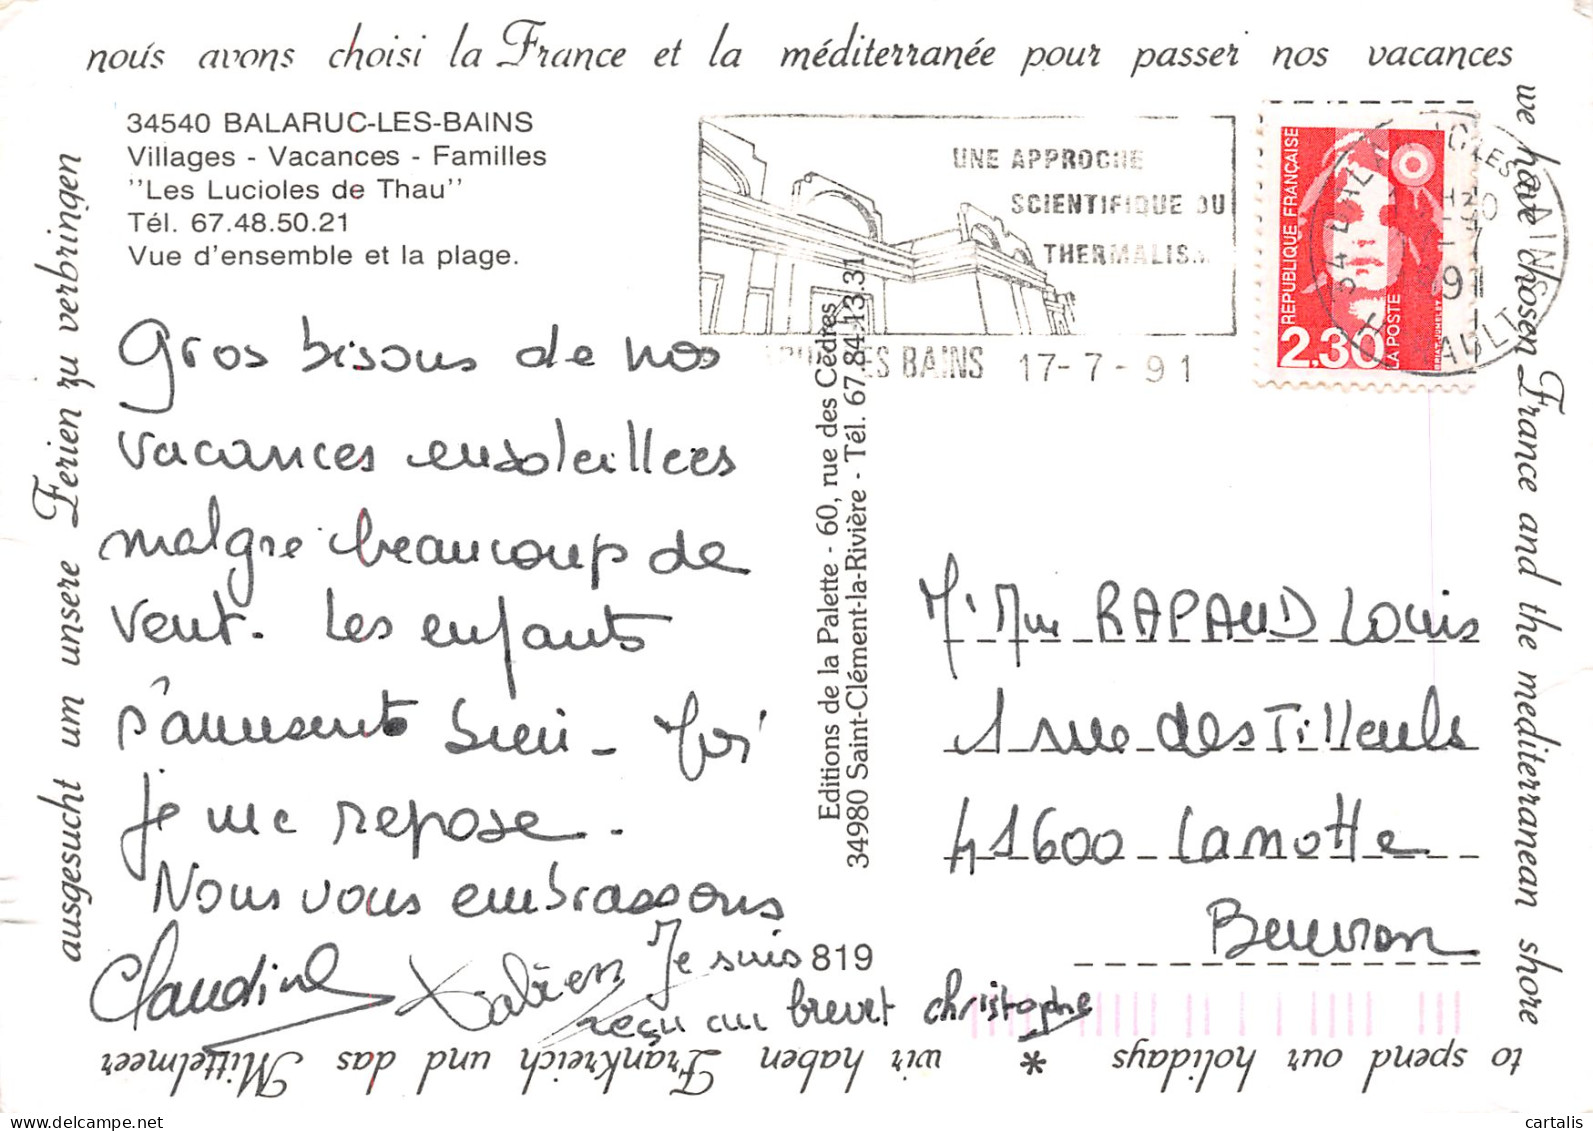 nous avons choisi la France et la méditerranée pour passer nos vacances
we have chosen France and the mediterranean shore
to spend our holidays * wir haben Frankreich und das Mittelmeer
ausgesucht um unsere Ferien zu verbringen
34540 BALARUC-LES-BAINS
Villages - Vacances - Familles
"Les Lucioles de Thau"
Tél. 67.48.50.21
Vue d'ensemble et la plage.
UNE APPROCHE
SCIENTIFIQUE DU
THERMALIS
LES BAINS 17-7-91
REPUBLIQUE FRANÇAISE
2,30
LA POSTE
BRIAT-JUMELET
91
Gros bisous de nos
vacances ensoleillees
malgre beaucoup de
vent. Les enfants
s'amusent bien - Moi
je me repose.
Nous vous embrassons
Claudine Fabien Je suis
reçu au brevet christophe
Editions de la Palette - 60, rue des Cèdres
34980 Saint-Clément-la-Rivière - Tél. 67.84.13.31
819
M. Mme RAPAUD Louis
1 rue des Tilleuls
41600 Lamotte
Beuvron
cartalis